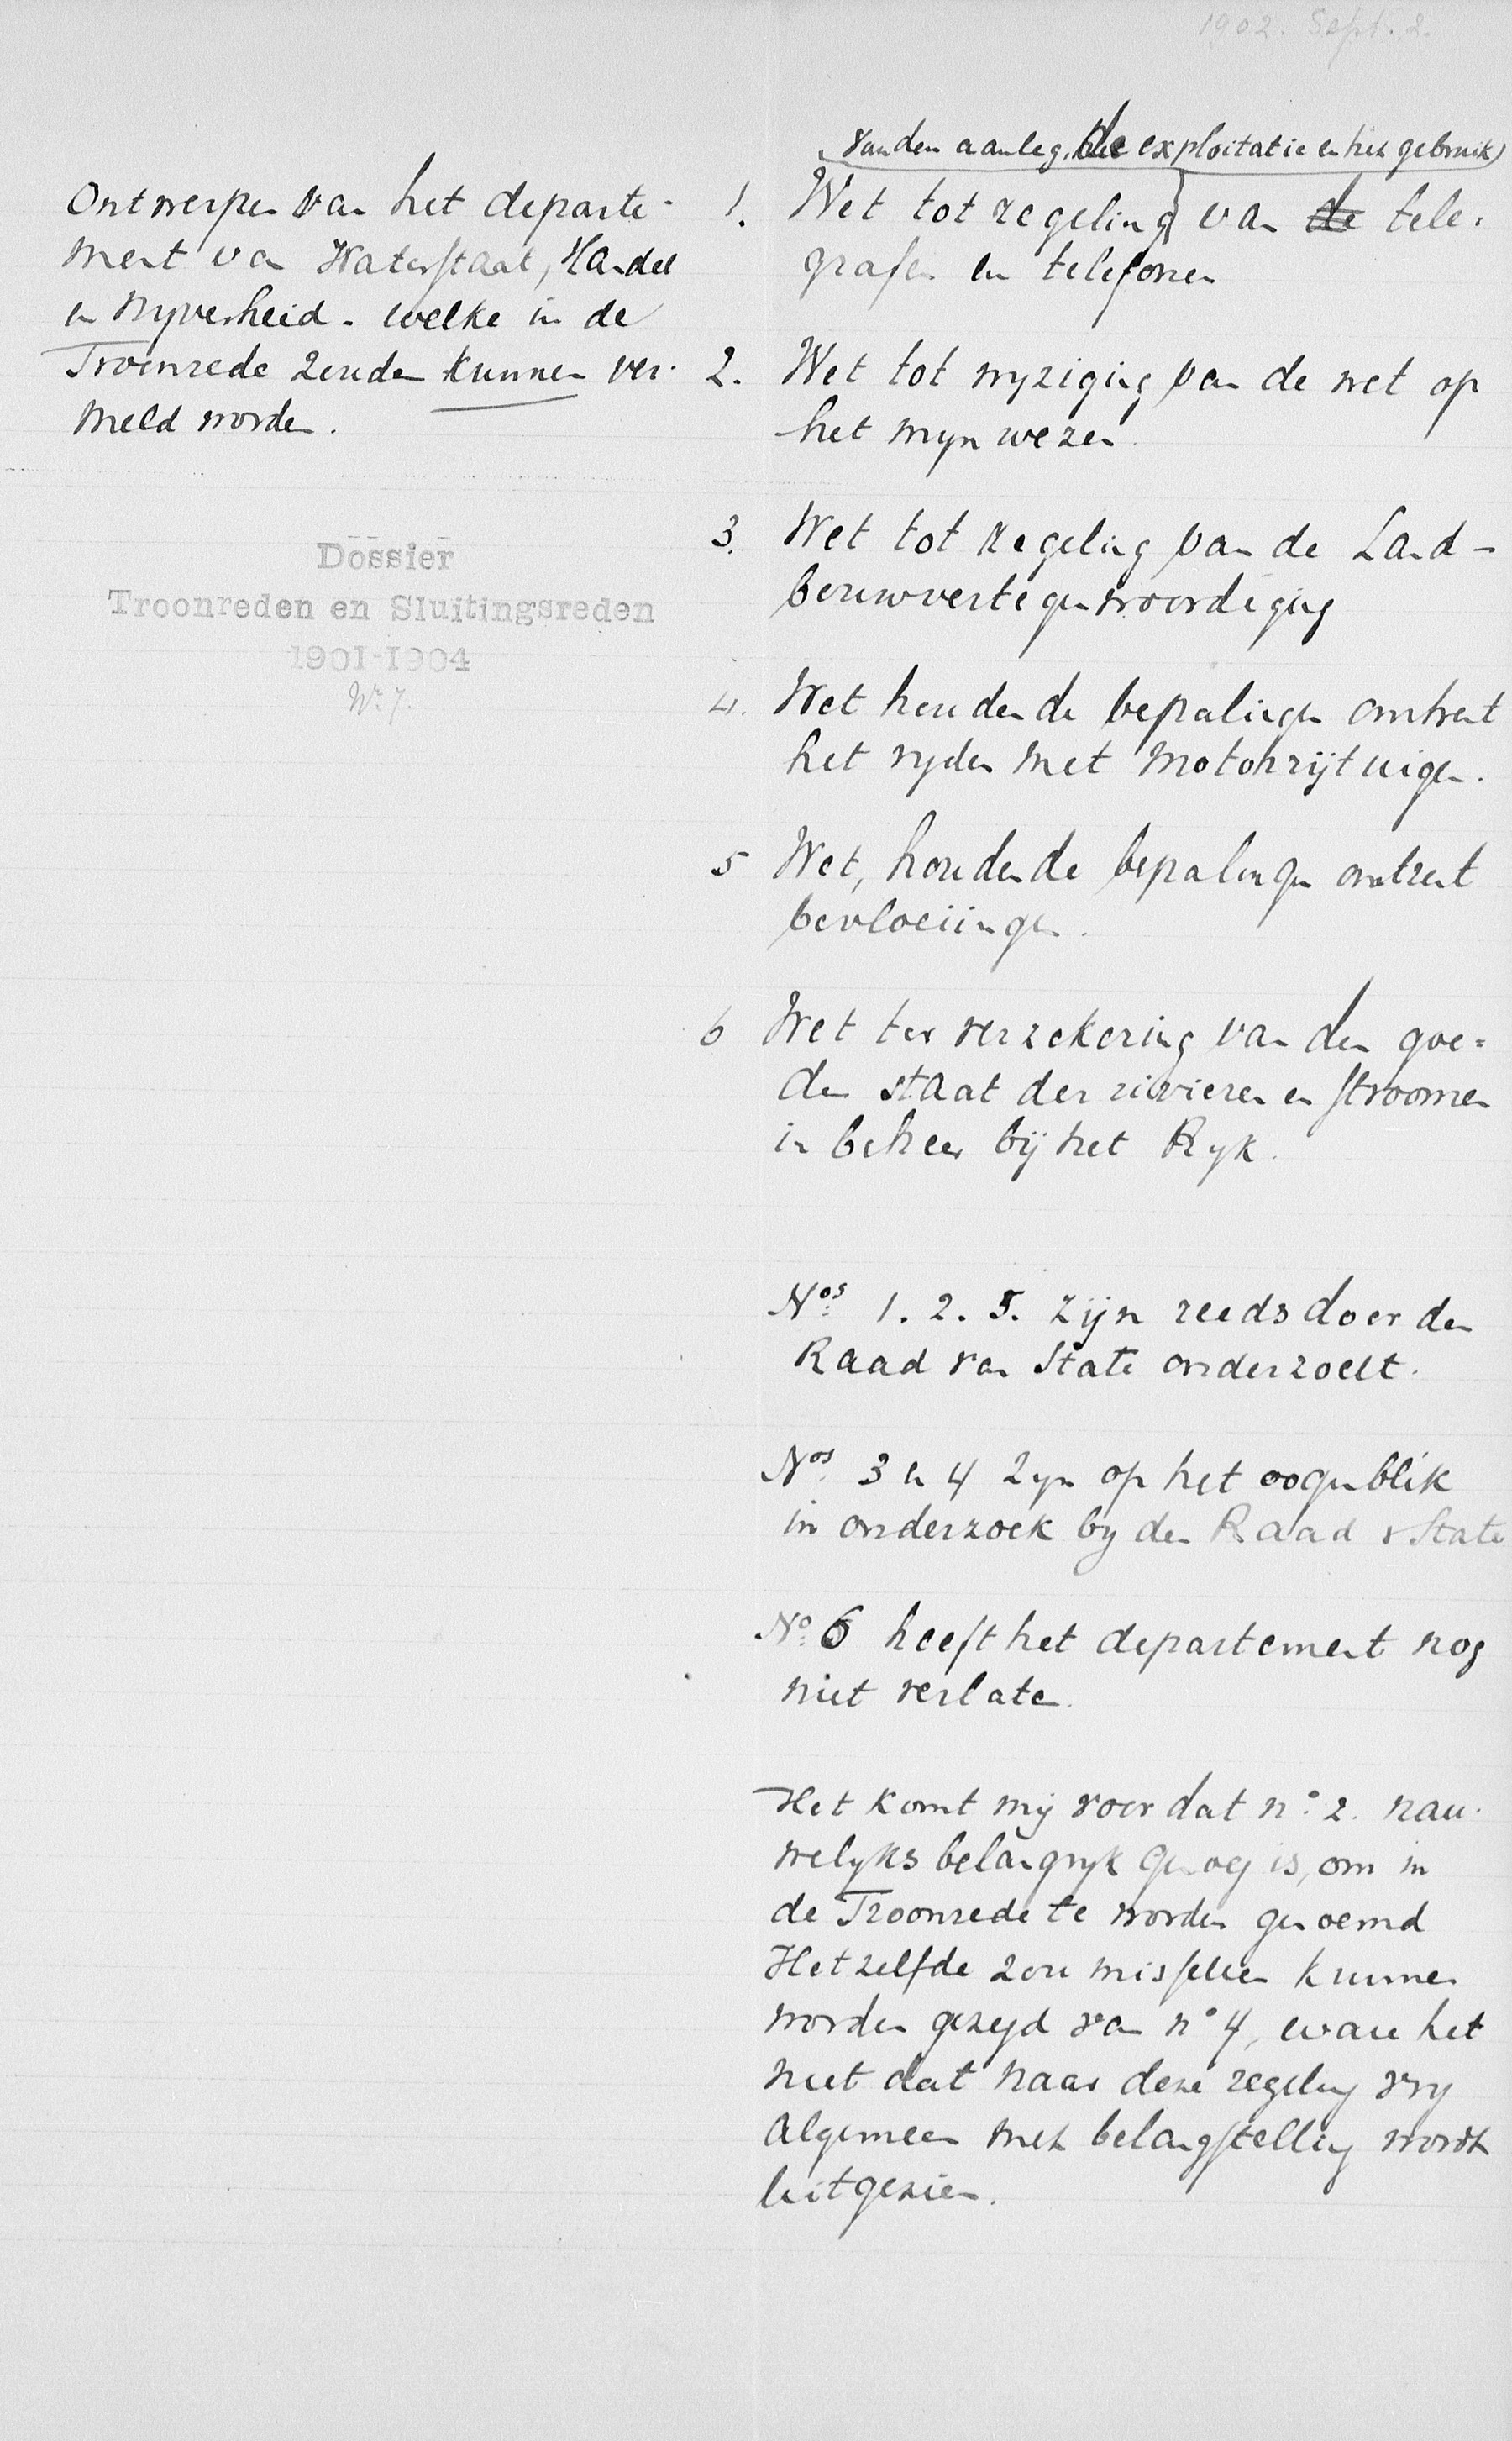 1902. Sept. 2.
Ontwerpen van het departe-
ment van Waterstaat, Handel
en Nyverheid - welke in de
Troonrede zouden kunnen ver-
meld worden.
Dossier
Troonreden en Sluitingsreden
1901-1904
Nr 7.
van den aanleg, de exploitatie en het gebruik
1. Wet tot regeling van de tele-
grafen en telefonen
2. Wet tot wyziging van de wet op
het mynwezen.
3. Wet tot regeling van de Land-
bouwvertegenwoordiging
4. Wet houdende bepalingen omtrent
het ryden met Motorrijtuigen.
5 Wet, houdende bepalingen omtrent
bevloeiingen.
6 Wet ter verzekering van den goe-
den staat der rivieren en stroomen
in beheer bij het Ryk.
Nos 1. 2. 5. zijn reeds door den
Raad van State onderzocht.
Nos 3 en 4 zyn op het oogenblik
in onderzoek by den Raad v State
No 6 heeft het departement nog
niet verlaten.
Het komt mij voor dat no 2. nau-
welyks belangryk genoeg is, om in
de Troonrede te worden genoemd
Hetzelfde zou misschien kunnen
worden gezegd van no 4, ware het
niet dat naar deze regeling vry
algemeen met belangstelling wordt
uitgezien.